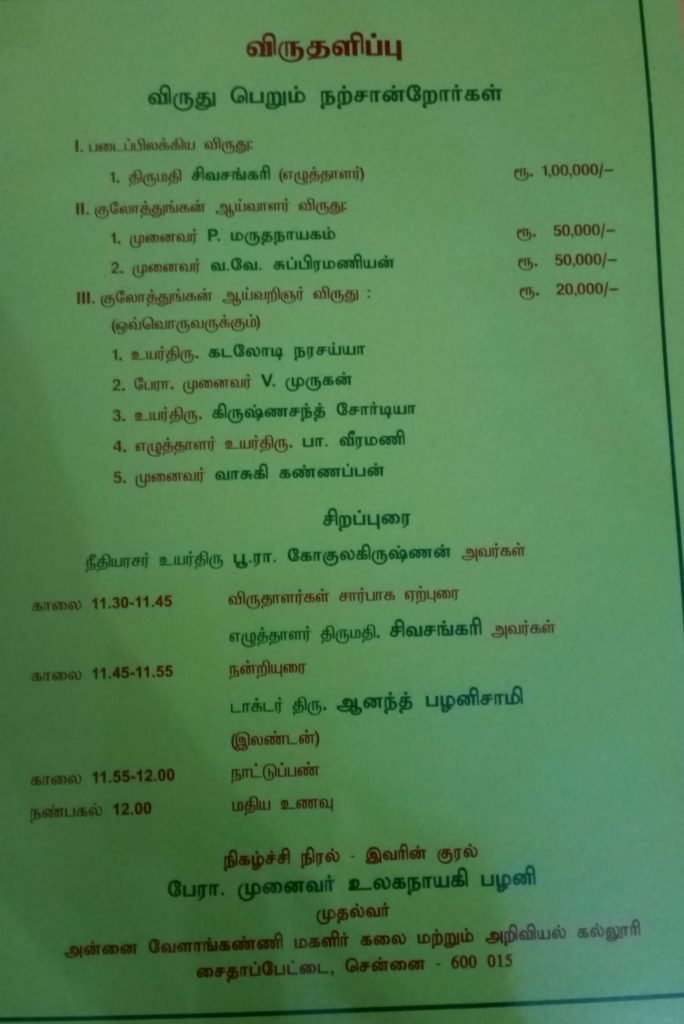 விருதளிப்பு
விருது பெறும் நற்சான்றோர்கள்
I. படைப்பிலக்கிய விருது:
1. திருமதி சிவசங்கரி (எழுத்தாளர்) ரூ. 1,00,000/–
II. குலோத்துங்கன் ஆய்வாளர் விருது:
1. முனைவர் P. மருதநாயகம் ரூ. 50,000/–
2. முனைவர் வ.வே. சுப்பிரமணியன் ரூ. 50,000/–
III. குலோத்துங்கன் ஆய்வறிஞர் விருது : ரூ. 20,000/–
(ஒவ்வொருவருக்கும்)
1. உயர்திரு. கடலோடி நரசய்யா
2. பேரா. முனைவர் V. முருகன்
3. உயர்திரு. கிருஷ்ணசந்த் சோர்டியா
4. எழுத்தாளர் உயர்திரு. பா. வீரமணி
5. முனைவர் வாசுகி கண்ணப்பன்
சிறப்புரை
நீதியரசர் உயர்திரு பூ.ரா. கோகுலகிருஷ்ணன் அவர்கள்
காலை 11.30-11.45 விருதாளர்கள் சார்பாக ஏற்புரை
எழுத்தாளர் திருமதி. சிவசங்கரி அவர்கள்
காலை 11.45-11.55 நன்றியுரை
டாக்டர் திரு. ஆனந்த் பழனிசாமி
(இலண்டன்)
காலை 11.55-12.00 நாட்டுப்பண்
நண்பகல் 12.00 மதிய உணவு
நிகழ்ச்சி நிரல் - இவரின் குரல்
பேரா. முனைவர் உலகநாயகி பழனி
முதல்வர்
அன்னை வேளாங்கண்ணி மகளிர் கலை மற்றும் அறிவியல் கல்லூரி
சைதாப்பேட்டை, சென்னை - 600 015